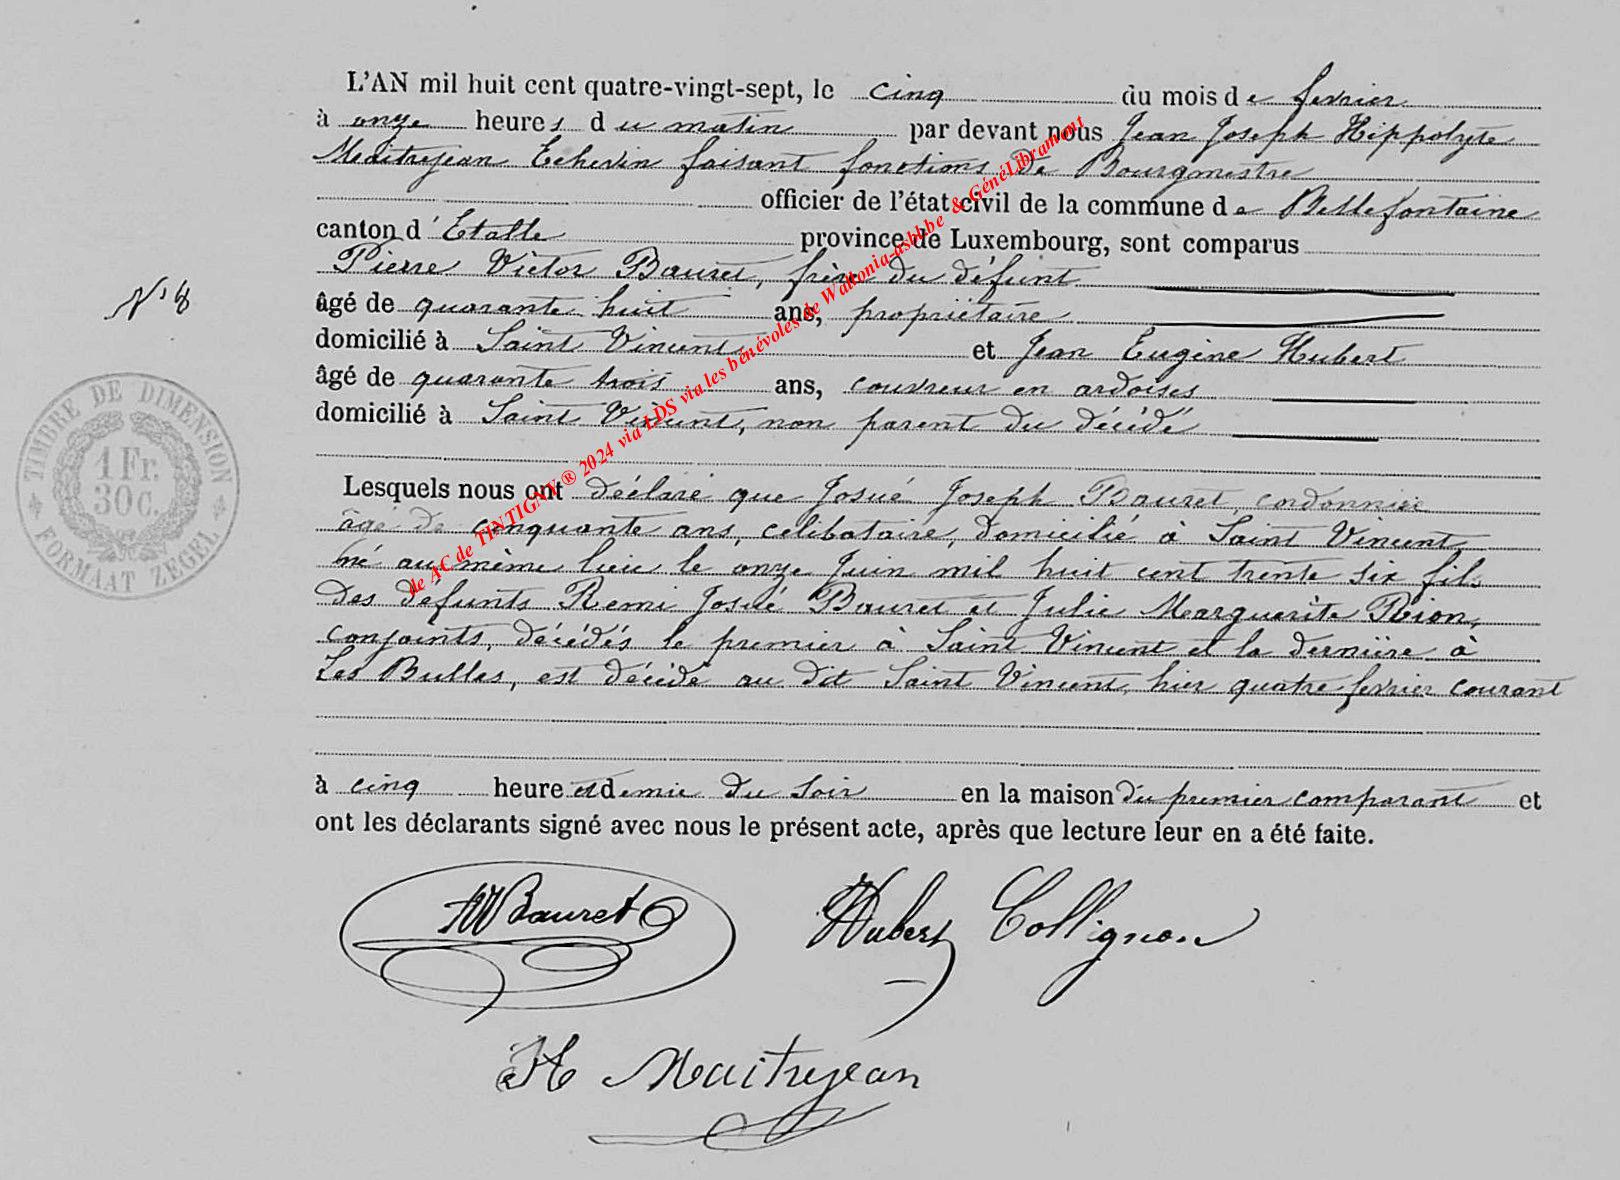 L'AN mil huit cent quatre-vingt-sept, le cinq du mois de fevrier
à onze heures du matin par devant nous Jean Joseph Hippolyte
Maitrejean Echevin faisant fonctions de Bourgmestre
officier de l'état civil de la commune de Bellefontaine
canton d'Etalle province de Luxembourg, sont comparus
Pierre Victor Bauret, frère du défunt
âgé de quarante huit ans, propriétaire
N° 8
domicilié à Saint Vincent et Jean Eugène Hubert
âgé de quarante trois ans, couvreur en ardoises
domicilié à Saint Vincent, non parent du décédé
TIMBRE DE DIMENSION
1 Fr.
30 c.
FORMAAT ZEGEL
Lesquels nous ont déclaré que Josué Joseph Bauret, cordonnier
âgé de cinquante ans, celibataire, domicilié à Saint Vincent
né au même lieu le onze Juin mil huit cent trente six fils
des defunts Remi Josué Bauret et Julie Marguerite Rion,
conjoints, décédés le premier à Saint Vincent et la dernière à
Les Bulles, est décédé au dit Saint Vincent, hier quatre fevrier courant
à cinq heure et demie du soir en la maison du premier comparant et
ont les déclarants signé avec nous le présent acte, après que lecture leur en a été faite.
Bauret Hubert Collignon
H Maitrejean
de AC de TINTIGNY® 2024 via LDS via les bénévoles de Wallonia-asbl.be & GénéLibramont